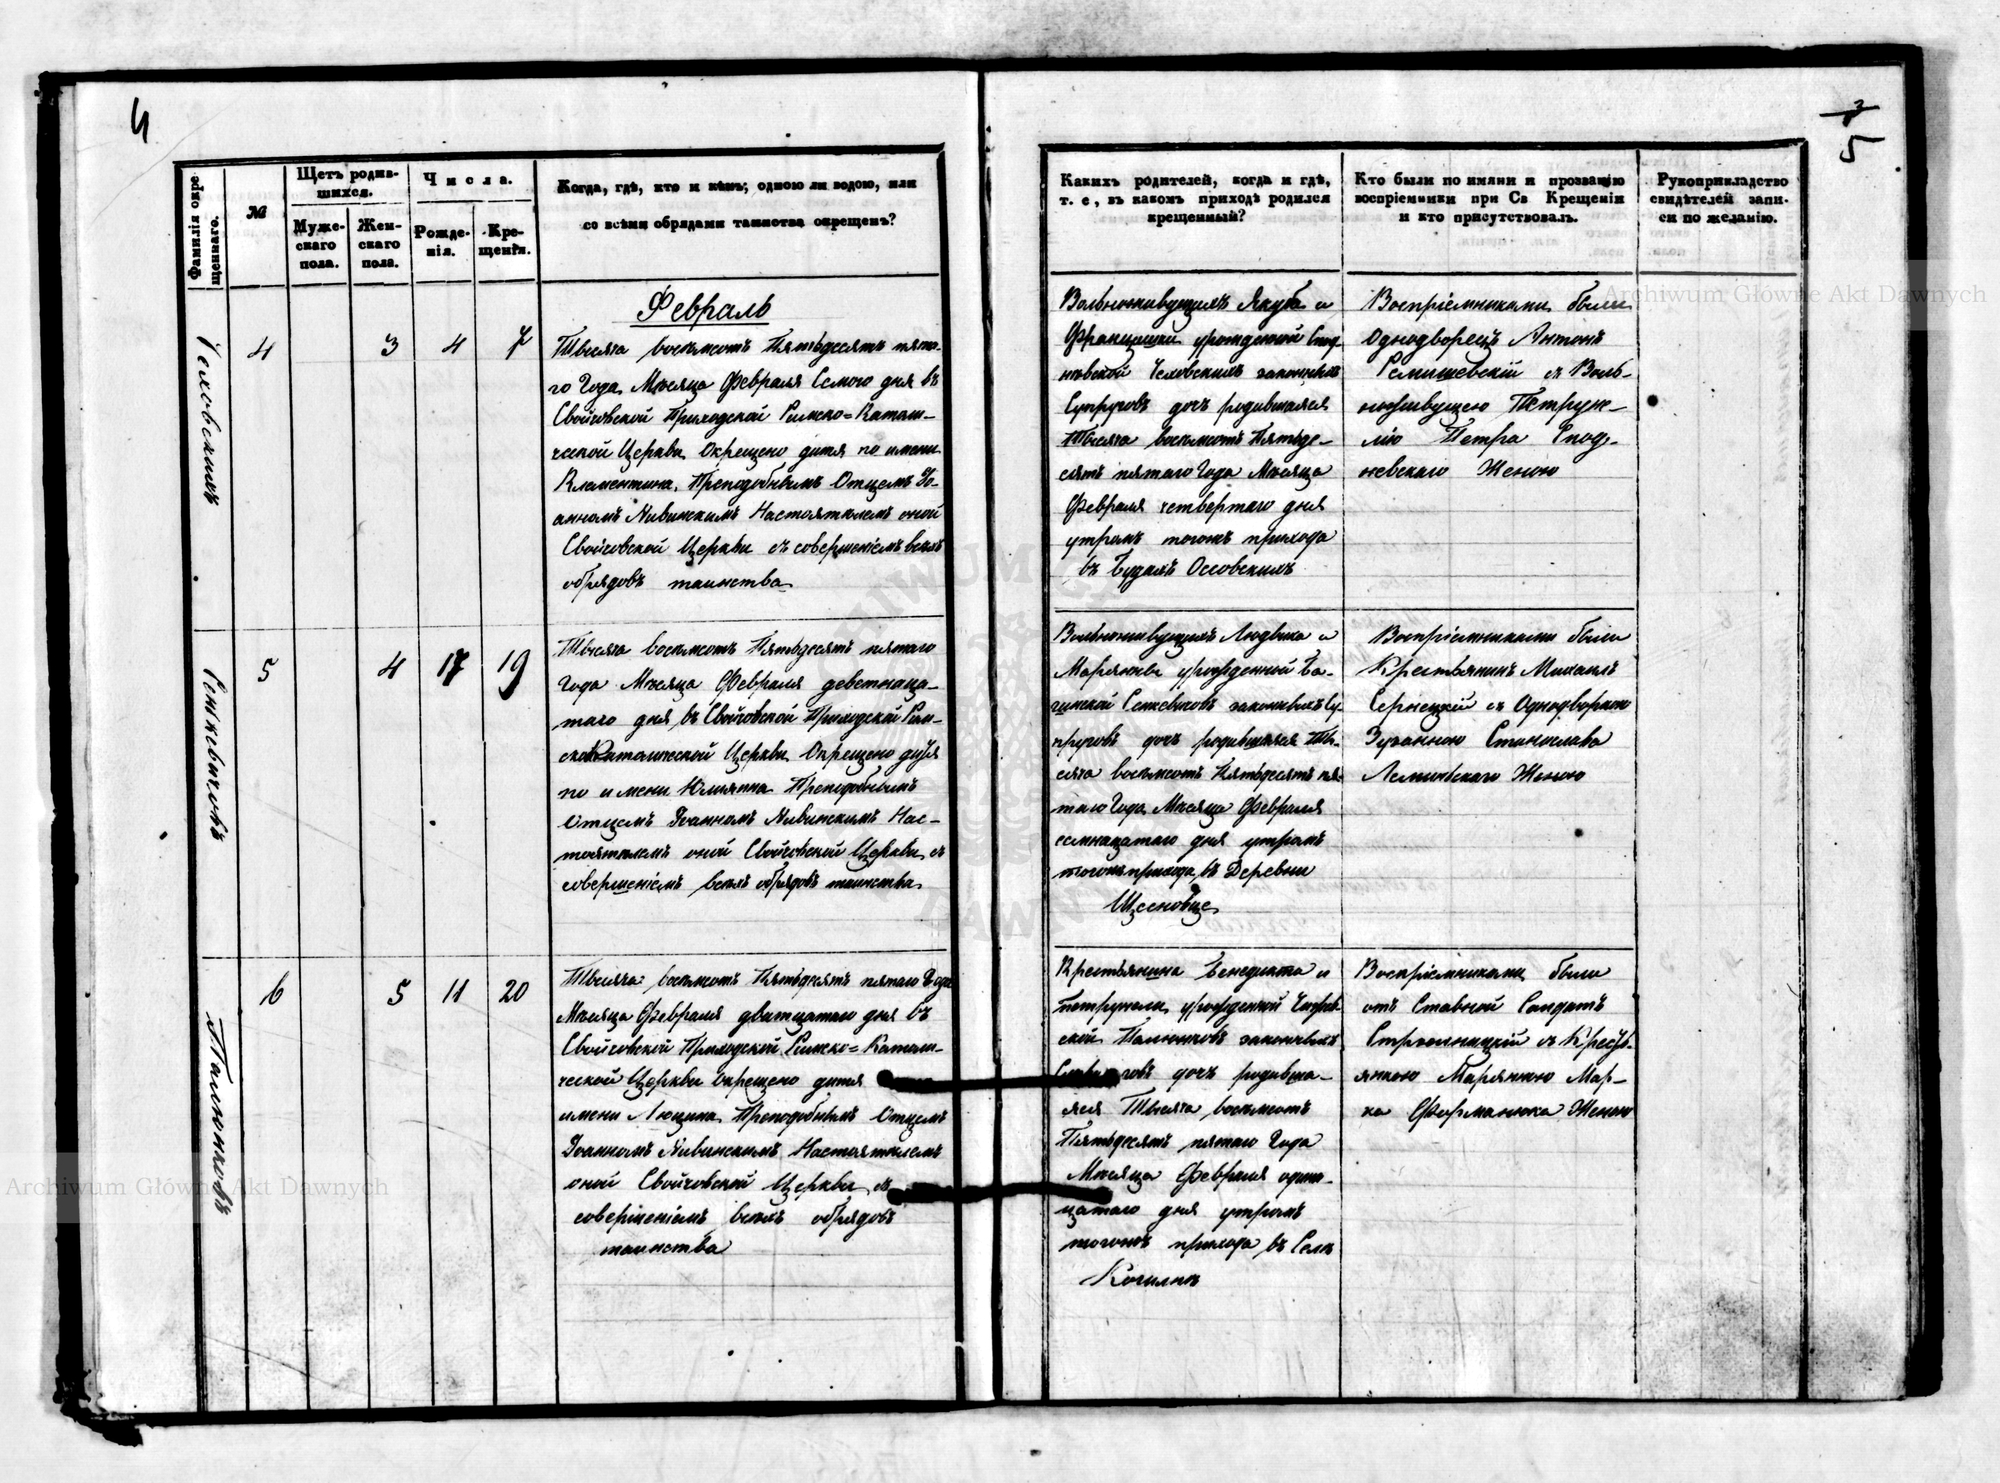 4
3
5
Фамилія окре
щеннаго.
№
Щетъ родив-
шихся.
Муже-
скаго
пола.
Жен-
скаго
пола.
Числа.
Рожде-
нія.
Кре-
щенія.
Когда, гдѣ, кто и кѣмъ; одною ли водою, или
со всѣми обрядами таинства окрещенъ?
Февраль
Чеховскихъ
4
3
4
7
Тысяча восемсотъ Пятьдесятъ пята-
го Года Мѣсяца Февраля Семого дня въ
Свойчовской Приходской Римско=Католи-
ческой Церкви Окрещено дитя по имени
Клементина, Преподобнымъ Отцемъ Іо-
анномъ Настоятелемъ оной
Свойчовской Церкви съ совершеніемъ всѣхъ
обрядовъ таинства
Сенкевичовъ
5
4
17
19
Тысяча восемсотъ Пятьдесятъ пятаго
Года Мѣсяца Февраля деветнаца-
таго дня, въ Свойчовской Приходской Рим-
ско Католической Церкви Окрещено дитя
по имени Юлиянна Преподобнымъ
Отцемъ Іоанномъ Нас-
тоятелемъ оной Свойчовской Церкви съ
совершеніемъ всѣхъ обрядовъ таинства
Пальонковъ
6
5
11
20
Тысяча восемсотъ Пятьдесятъ пятаго Года
Мѣсяца Февраля дватцатаго дня въ
Свойчовской Приходской Римско=Католи-
ческой Церкви Окрещено дитя
имени Люцина Преподобнымъ Отцемъ
Іоанномъ Настоятелемъ
оной Свойчовской Церкви съ
совершеніемъ всѣхъ обрядовъ
таинства
Какихъ родителей, когда и гдѣ,
т. е, въ какомъ приходѣ родился
крещенный?
Кто были по имяни и прозванію
воспріемники при Св Крещеніи
и кто присутствовалъ.
Рукоприкладство
свидѣтелей запи-
си по желанію.
Вольноживущихъ Якуба и
Францишки урожденной Спод-
нѣвской Чеховскихъ законныхъ
Супруговъ дочь родившаяся
Тысяча восемсотъ Пятьде-
сятъ пятаго Года Мѣсяца
Февраля четвертаго дня
утромъ тогожъ прихода
въ Будахъ Оссовскихъ
Воспріемниками были
Однодворецъ Антонъ
Ремишевскій съ Воль-
ноживущею Петруне-
лію Петра Спод-
невскаго Женою
Вольноживущихъ Людвика и
Марянны урожденной Ба-
гинской Сенкевичовъ законныхъ Су-
пруговъ дочь родившаяся Ты-
сяча восемсотъ Пятьдесятъ пя-
таго Года Мѣсяца Февраля
семнацатаго дня утромъ
тогожъ прихода, въ Деревни
Воспріемниками были
Крестьянинъ Михаилъ
Сернецкій съ Однодворкою
Зузанною Станислава
Женою
Крестьянина Бенедикта и
Петрунели, урожденной
ской Пальонковъ законныхъ
Супруговъ дочь родивша-
яся Тысяча восемсотъ
Пятьдесятъ пятаго Года
Мѣсяца Февраля один-
цатаго дня утромъ
тогожъ прихода въ Селѣ
Когильнѣ
Воспріемниками были
отъ Ставной Солдатъ
съ Кресть-
янкою Марянною Мар-
ка Форманюка Женою
Archiwum Główne Akt Dawnych
Archiwum Główne Akt Dawnych